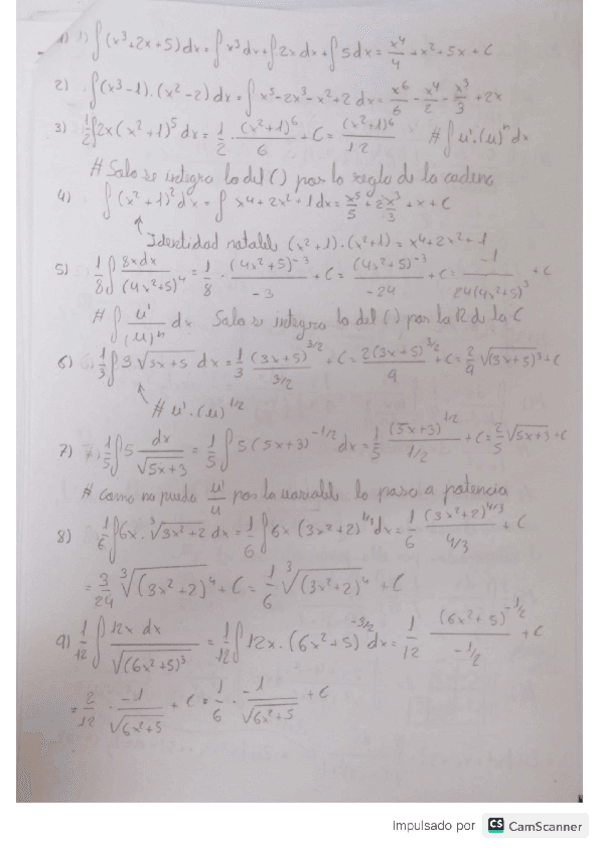 1) ∫(x³+2x+5)dx = ∫x³dx + ∫2x dx + ∫5dx = x⁴/4 + x² + 5x + C
2) ∫(x³-1).(x²-2)dx = ∫x⁵-2x³-x²+2 dx = x⁶/6 - x⁴/2 - x³/3 + 2x
3) 1/2 ∫2x(x²+1)⁵ dx = 1/2 . (x²+1)⁶/6 + C = (x²+1)⁶/12 # ∫u'.(u)ⁿ dx
# Solo se integra lo del () por la regla de la cadena
4) ∫(x²+1)² dx = ∫x⁴+2x²+1 dx = x⁵/5 + 2x³/3 + x + C
Identidad notable (x²+1).(x²+1) = x⁴+2x²+1
5) 1/8 ∫ 8xdx/(4x²+5)⁴ = 1/8 . (4x²+5)⁻³/-3 + C = (4x²+5)⁻³/-24 + C = -1/24(4x²+5)³ + C
# ∫ u'/(u)ⁿ dx Solo se integra lo del () por la R de la C
6) 1/3 ∫3 √3x+5 dx = 1/3 (3x+5)^3/2/3/2 + C = 2(3x+5)^3/2/9 + C = 2/9 √(3x+5)³ + C
# u'.(u)^1/2
7) 1/5 ∫5 dx/√5x+3 = 1/5 ∫5(5x+3)^-1/2 dx = 1/5 (5x+3)^1/2/1/2 + C = 2/5 √5x+3 + C
# como no puedo u'/u por la variable lo paso a potencia
8) 1/6 ∫6x.∛3x²+2 dx = 1/6 ∫6x (3x²+2)^1/3 dx = 1/6 (3x²+2)^4/3/4/3 + C
= 3/24 ∛(3x²+2)⁴ + C = 1/6 ∛(3x²+2)⁴ + C
9) 1/12 ∫ 12x dx/√(6x²+5)³ = 1/12 ∫12x.(6x²+5)^-3/2 dx = 1/12 (6x²+5)^-1/2/-1/2 + C
= 2/12 . -1/√6x²+5 + C = 1/6 . -1/√6x²+5 + C
Impulsado por CS CamScanner